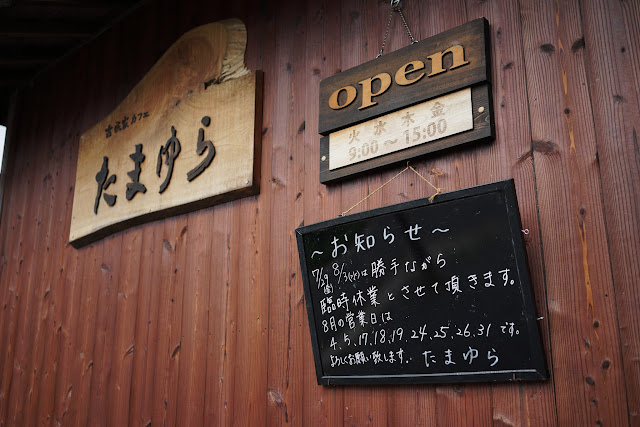 古民家カフェ
たまゆら
open
火水木金
9:00～15:00
～お知らせ～
7/29(金) 8/3(水)は勝手ながら
臨時休業とさせて頂きます。
8月の営業日は
4、5、17、18、19、24、25、26、31です。
よろしくお願い致します。たまゆら